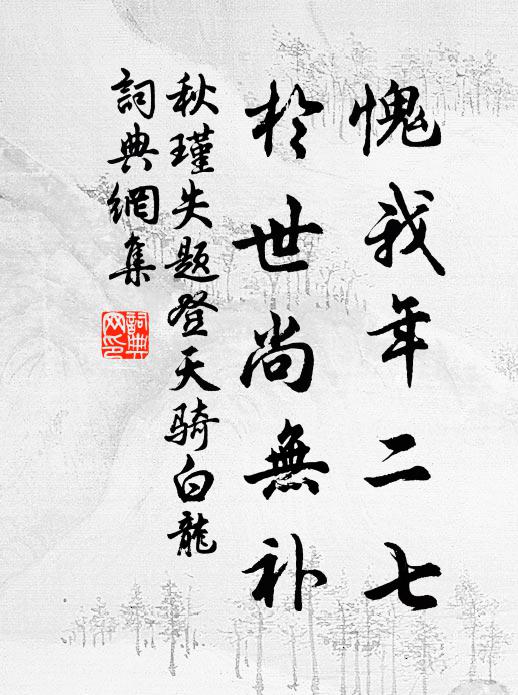 愧我年二七
於世尚無补
秋瑾失题登天骑白龍
詞典網集
詞典網印